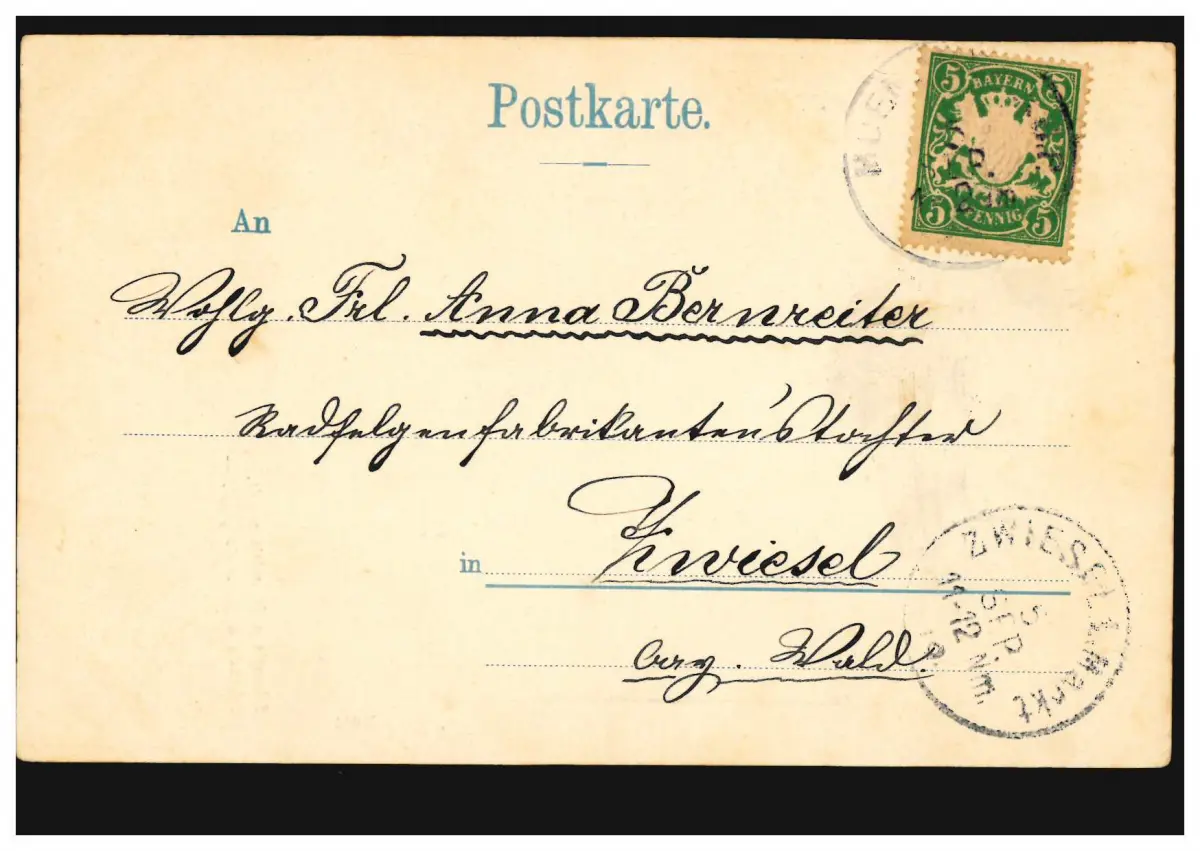 Postkarte.
5 BAYERN 5
5 PFENNIG 5
An
Wohlg. Frl. Anna Bernreiter
Radfelgenfabrikanten'stochter
in Zwiesel
bay. Wald.
ZWIESEL i. Markt
5
SEP.
11-12 Nm.